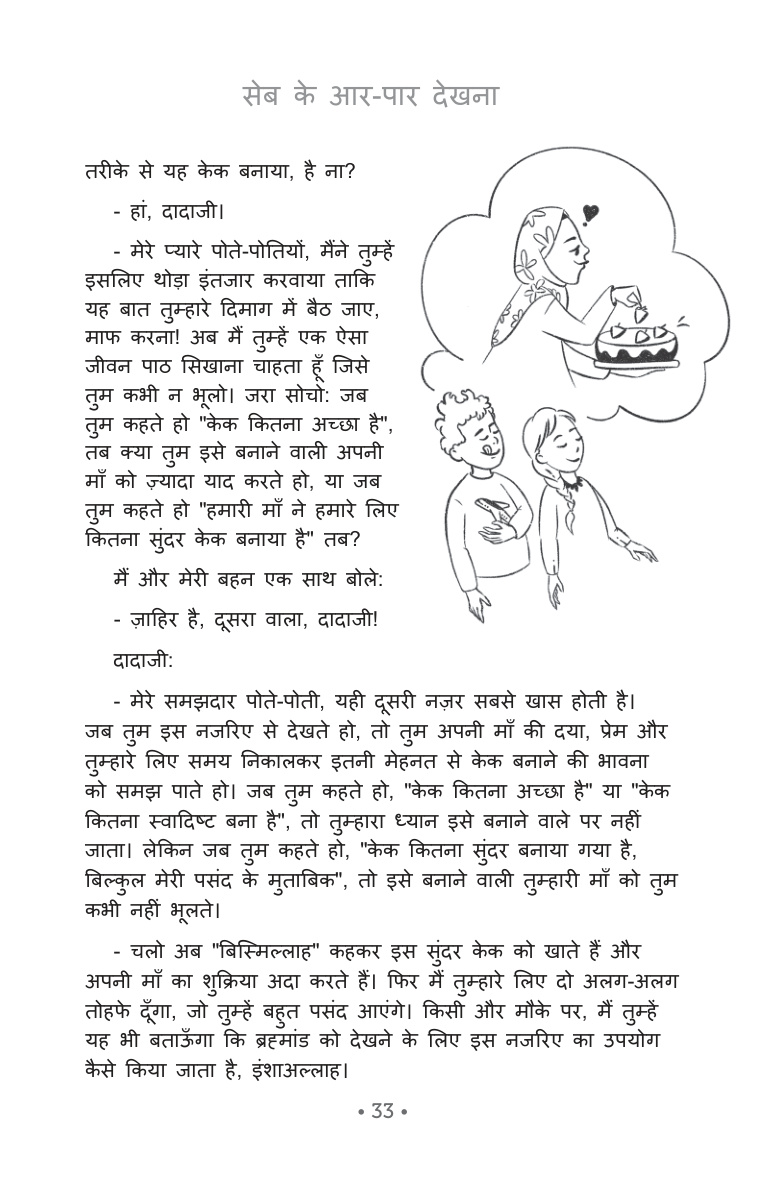 सेब के आर-पार देखना
तरीके से यह केक बनाया, है ना?
- हां, दादाजी।
- मेरे प्यारे पोते-पोतियों, मैंने तुम्हें
इसलिए थोड़ा इंतजार करवाया ताकि
यह बात तुम्हारे दिमाग में बैठ जाए,
माफ करना! अब मैं तुम्हें एक ऐसा
जीवन पाठ सिखाना चाहता हूँ जिसे
तुम कभी न भूलो। जरा सोचो: जब
तुम कहते हो "केक कितना अच्छा है",
तब क्या तुम इसे बनाने वाली अपनी
माँ को ज़्यादा याद करते हो, या जब
तुम कहते हो "हमारी माँ ने हमारे लिए
कितना सुंदर केक बनाया है" तब?
मैं और मेरी बहन एक साथ बोले:
- ज़ाहिर है, दूसरा वाला, दादाजी!
दादाजी:
- मेरे समझदार पोते-पोती, यही दूसरी नज़र सबसे खास होती है।
जब तुम इस नजरिए से देखते हो, तो तुम अपनी माँ की दया, प्रेम और
तुम्हारे लिए समय निकालकर इतनी मेहनत से केक बनाने की भावना
को समझ पाते हो। जब तुम कहते हो, "केक कितना अच्छा है" या "केक
कितना स्वादिष्ट बना है", तो तुम्हारा ध्यान इसे बनाने वाले पर नहीं
जाता। लेकिन जब तुम कहते हो, "केक कितना सुंदर बनाया गया है,
बिल्कुल मेरी पसंद के मुताबिक", तो इसे बनाने वाली तुम्हारी माँ को तुम
कभी नहीं भूलते।
- चलो अब "बिस्मिल्लाह" कहकर इस सुंदर केक को खाते हैं और
अपनी माँ का शुक्रिया अदा करते हैं। फिर मैं तुम्हारे लिए दो अलग-अलग
तोहफे दूँगा, जो तुम्हें बहुत पसंद आएंगे। किसी और मौके पर, मैं तुम्हें
यह भी बताऊँगा कि ब्रह्मांड को देखने के लिए इस नजरिए का उपयोग
कैसे किया जाता है, इंशाअल्लाह।
• 33 •